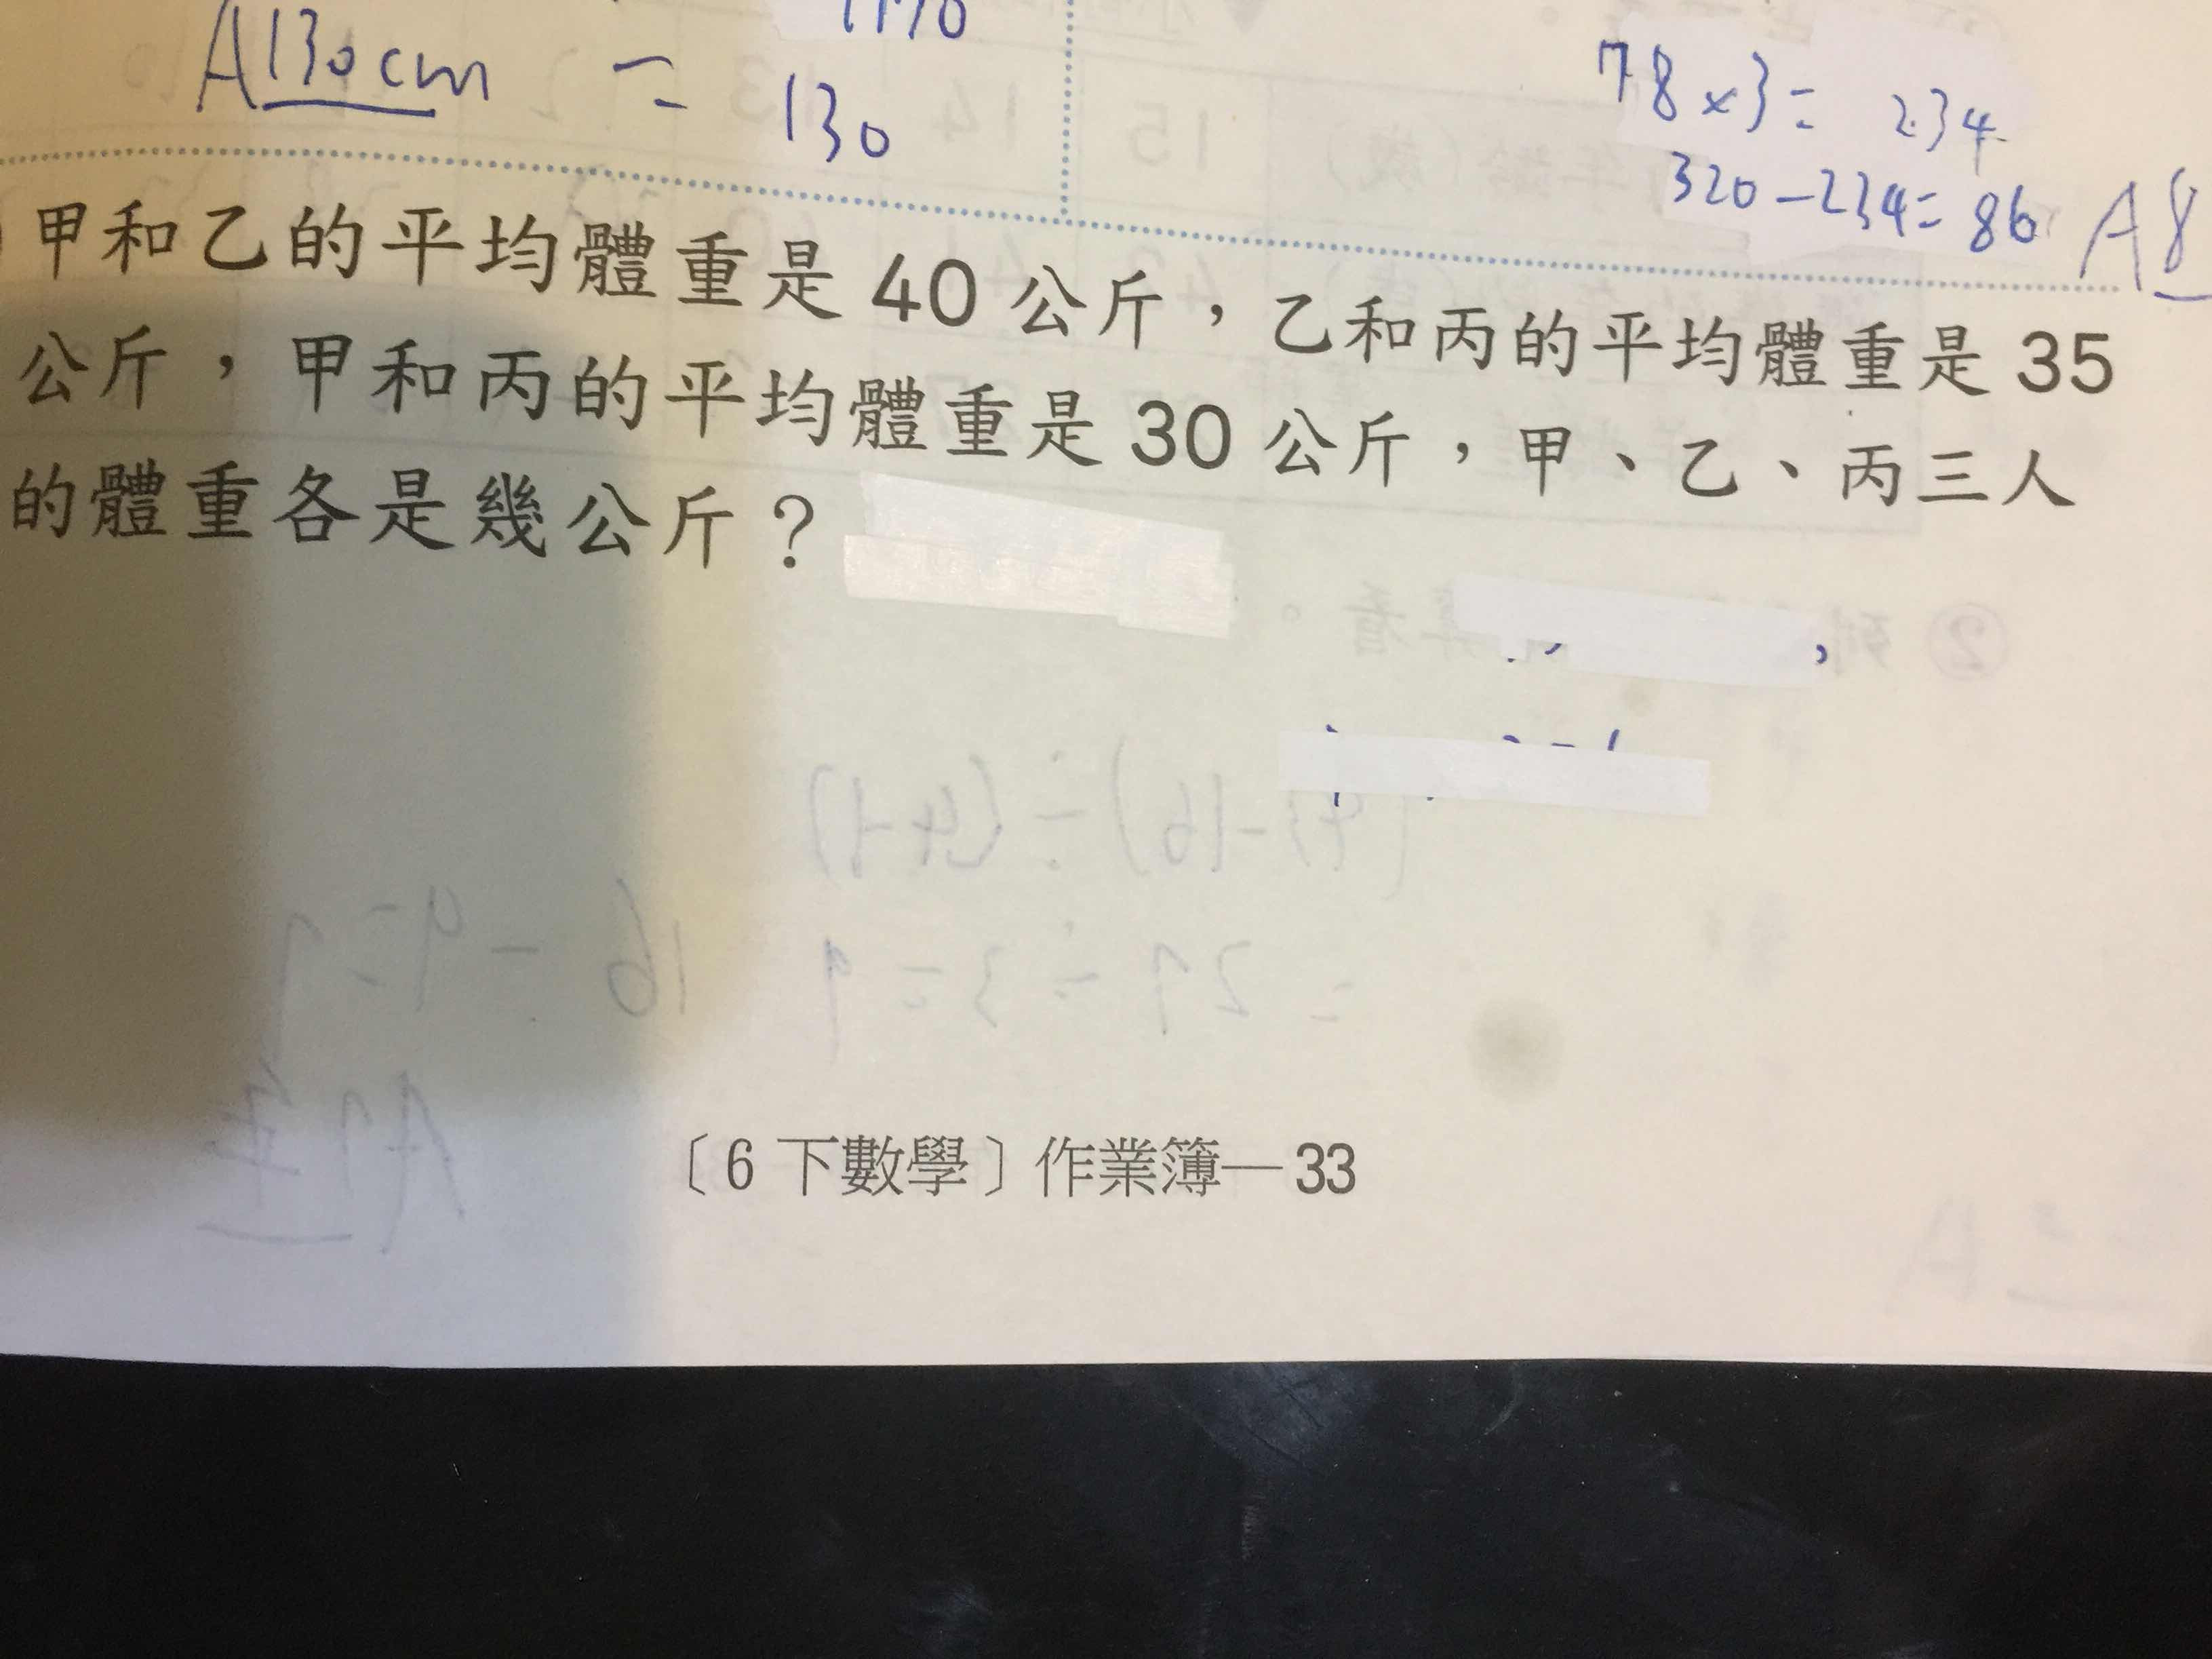 A130cm = 130
78×3= 234
320-234=86
甲和乙的平均體重是40公斤，乙和丙的平均體重是35
公斤，甲和丙的平均體重是30公斤，甲、乙、丙三人
的體重各是幾公斤？
〔6下數學〕作業簿—33